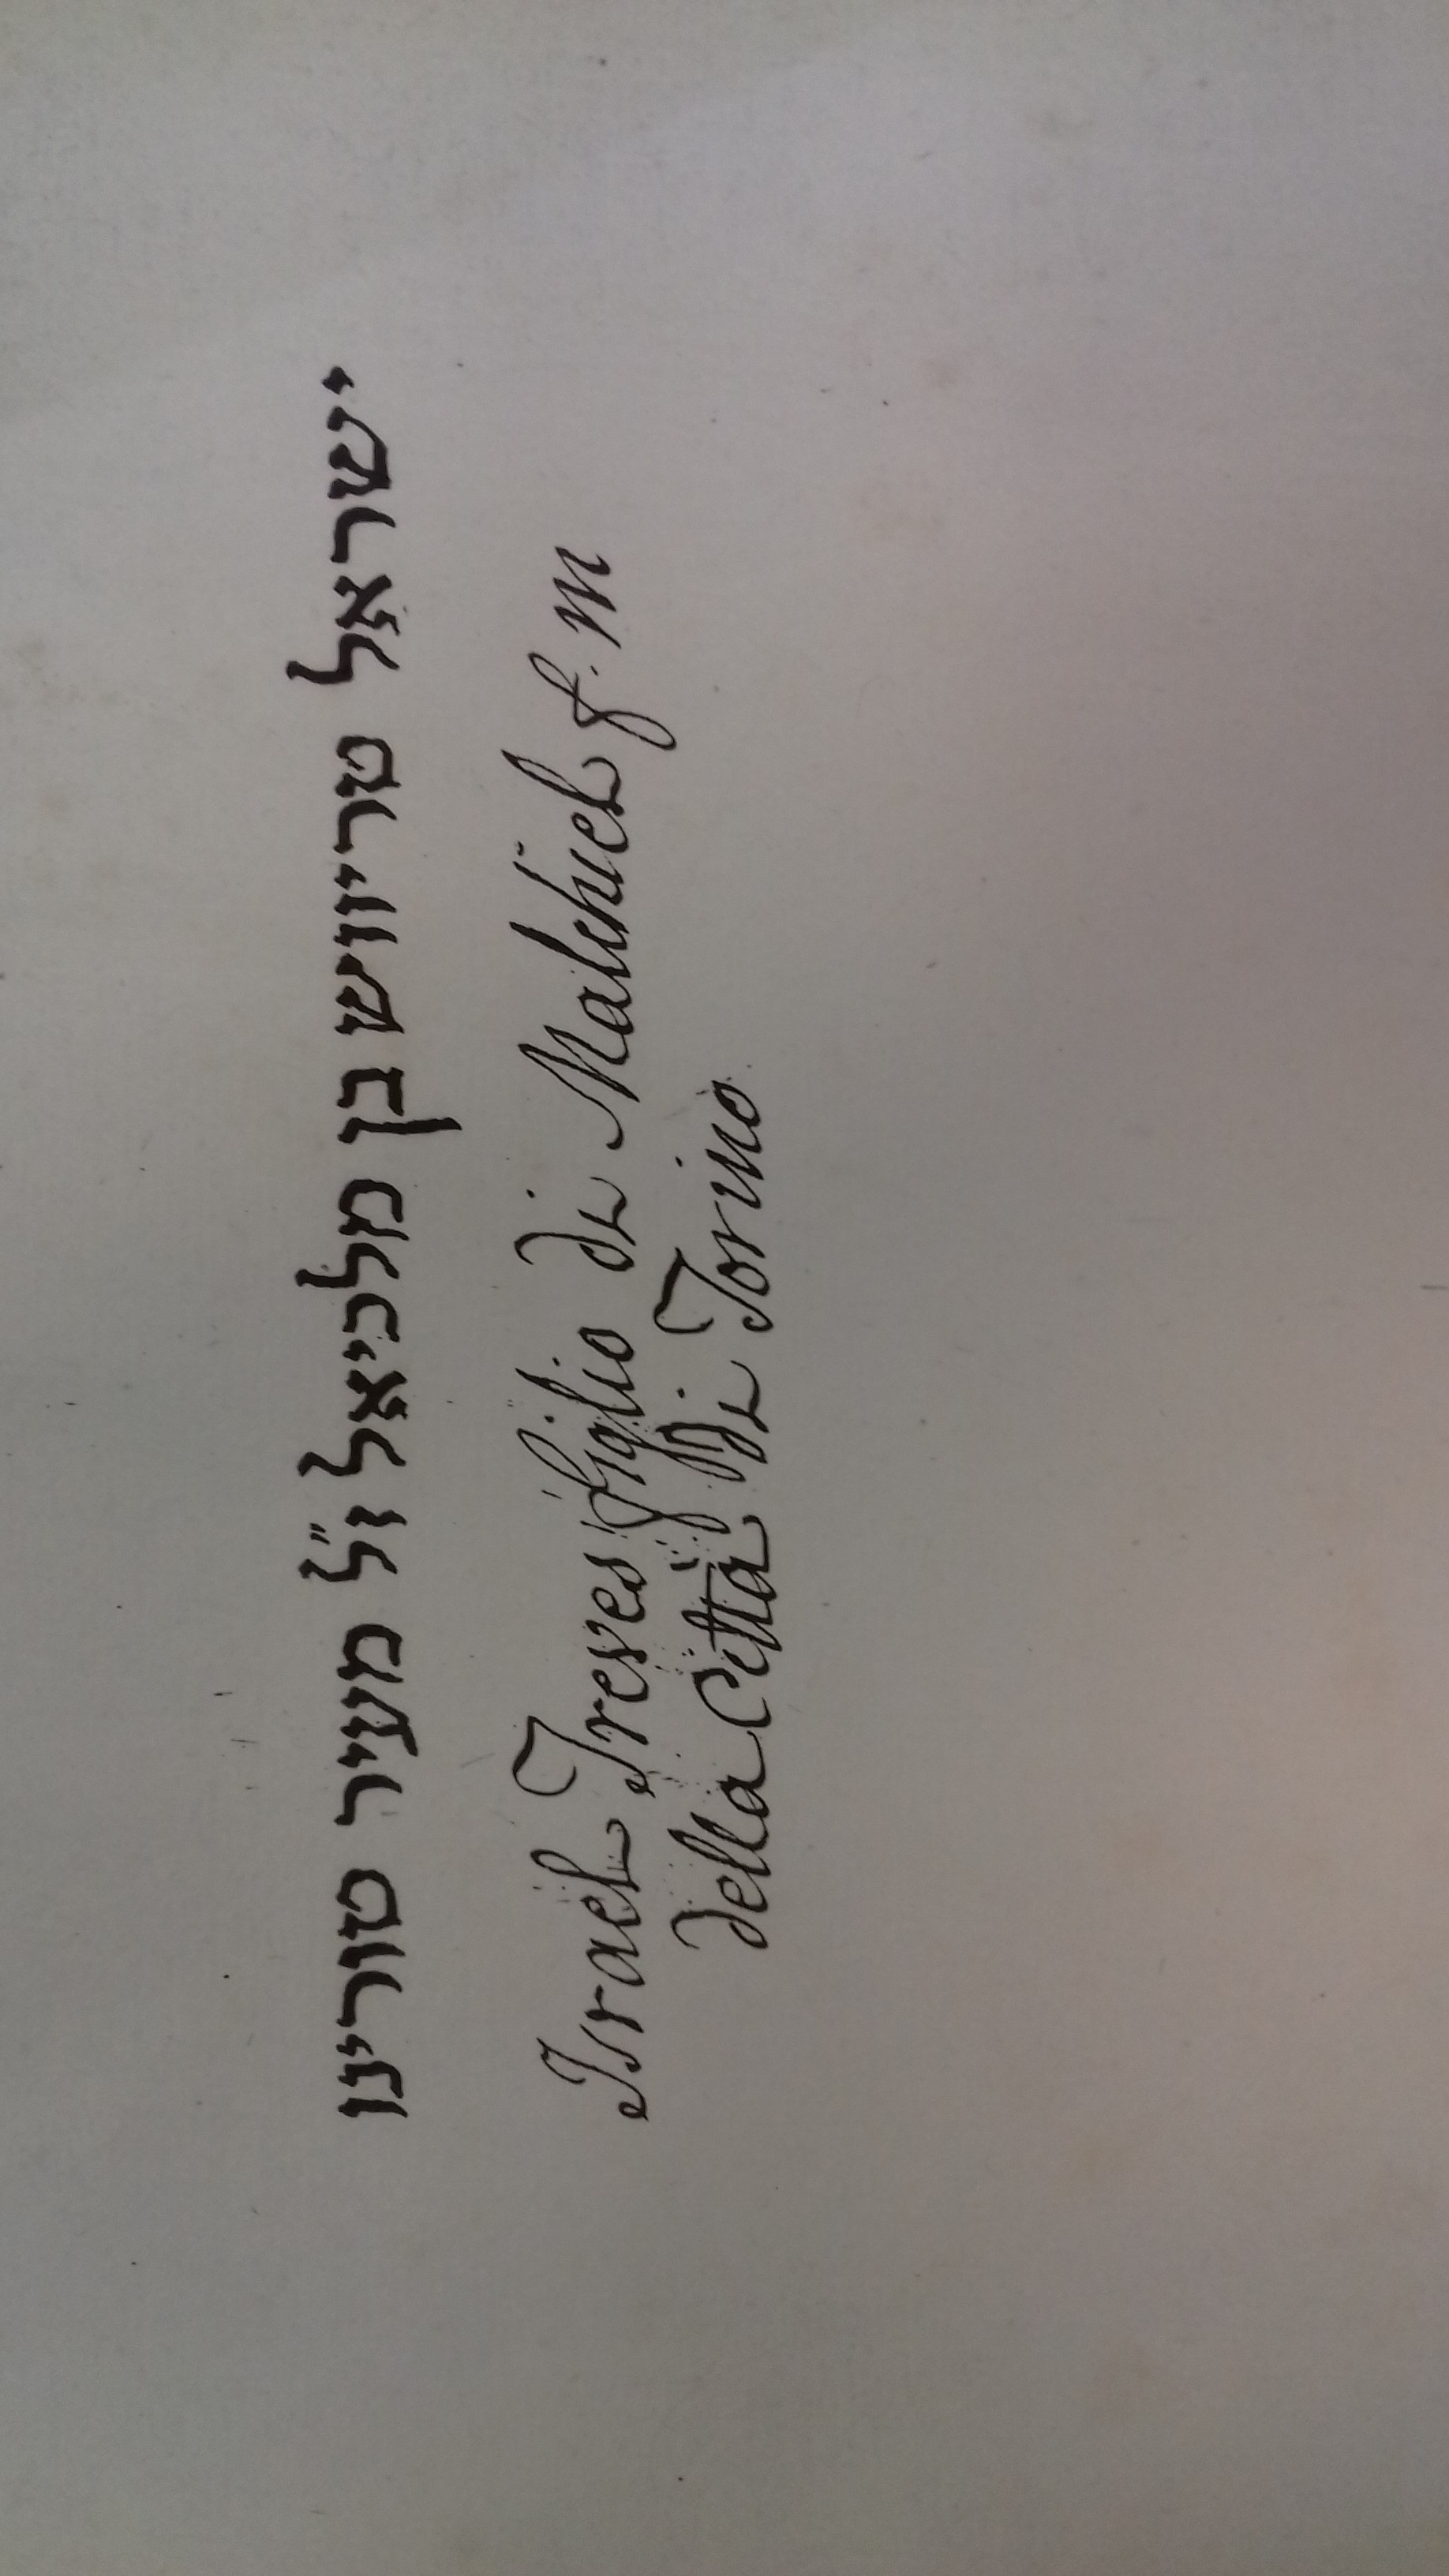 ישראל טריוויש בן מלכיאל ז״ל מעיר טורינו
Israel Treves figlio di Malchiel f. m
della Città di Torino